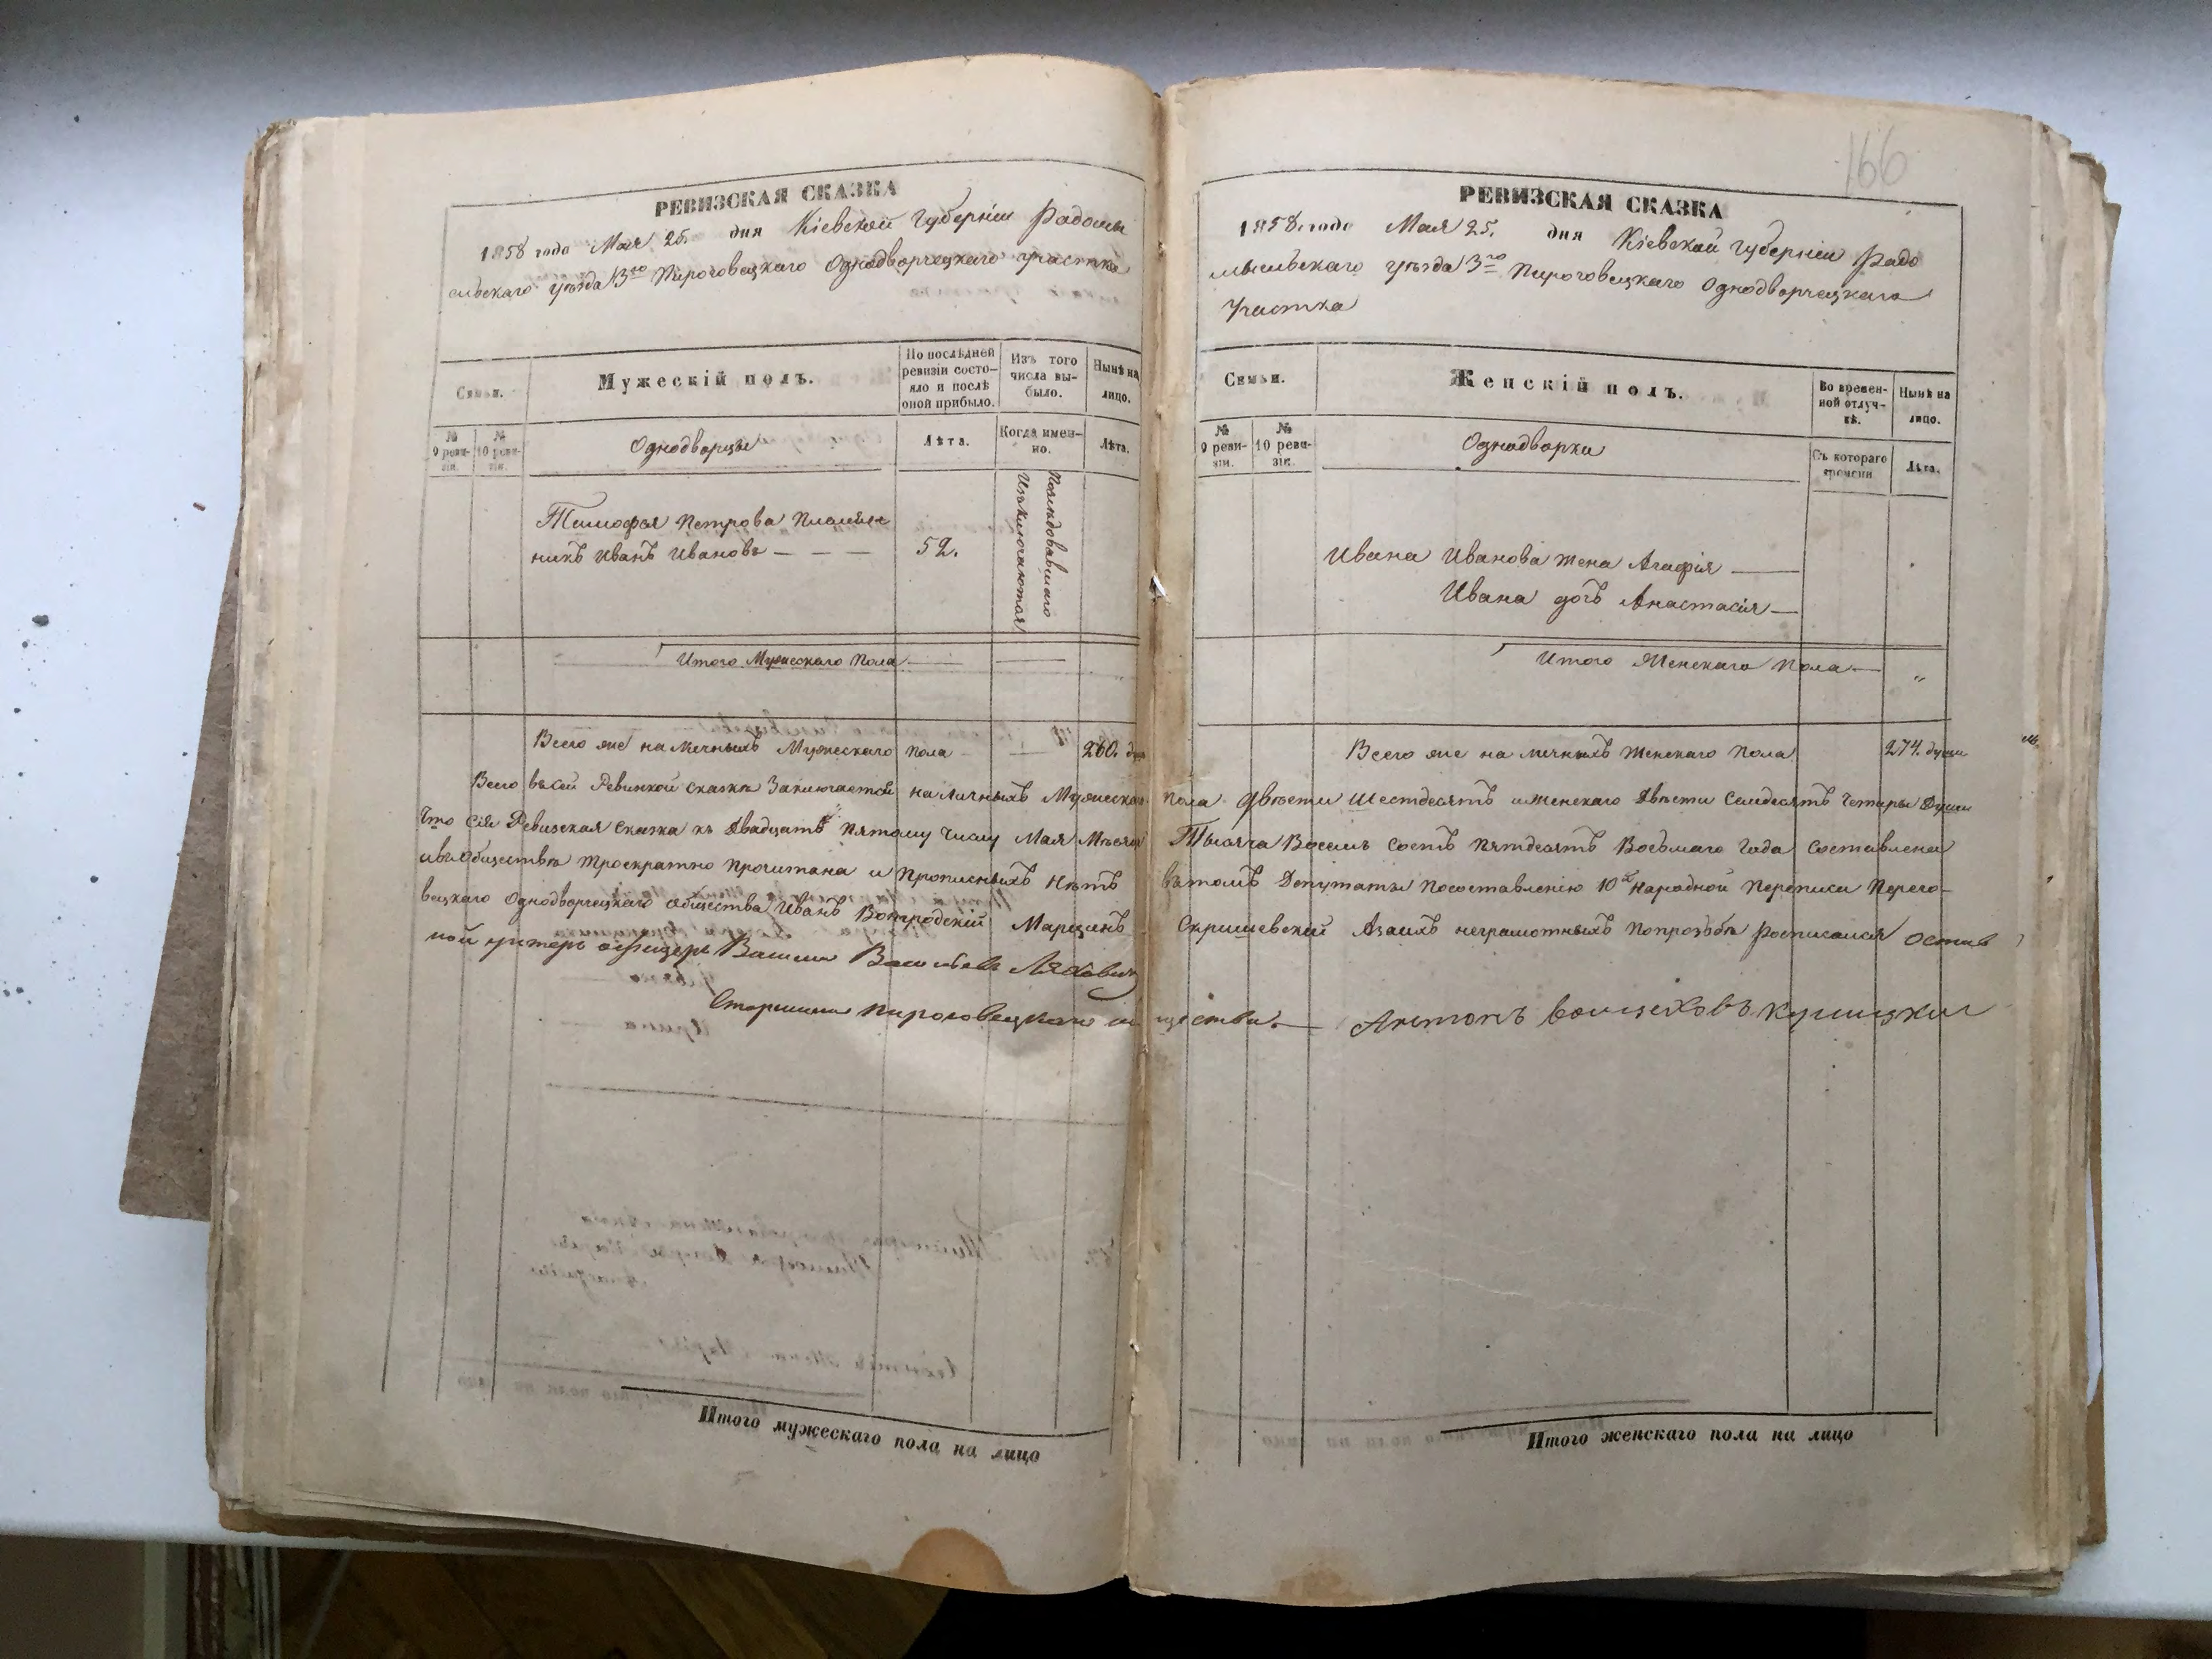 РЕВИЗСКАЯ СКАЗКА
1858 года Мая 25. дня Кіевской Губерніи Радомы
сльскаго Уѣзда 3го Пироговецкаго Однодворческаго участка
Семьи.
Мужескій полъ.
По послѣдней ревизіи состояло и послѣ оной прибыло.
Изъ того числа выбыло.
Нынѣ на лицо.
№ 9 ревизіи.
№ 10 ревизіи.
Однодворцы
Лѣта.
Когда именно.
Лѣта.
Тимофея Петрова Племян
никъ Иванъ Ивановъ — — —
52.
Изключаются
Итого Мужескаго Пола
Всего же на личныхъ Мужескаго пола — 260. душ
166
РЕВИЗСКАЯ СКАЗКА
1858 года Мая 25. дня Кіевской Губерніи Радо
мысльскаго Уѣзда 3го Пироговецкаго Однодворческаго
Участка
Семьи.
Женскій полъ.
Во временной отлучкѣ.
Нынѣ на лицо.
№ 9 ревизіи.
№ 10 ревизіи.
Однодворки
Съ котораго времени
Лѣта.
Ивана Иванова жена Агафія —
Ивана дочь Анастасія —
Итого Женскаго Пола — "
Всего же на личныхъ Женскаго Пола 274. души
Всего въ сей Ревизкой сказкѣ Заключается на личныхъ Мужескаго пола двѣсти шестдесятъ и женскаго Двѣсти Семдесятъ Четыре Души
Что сія Ревизская Сказка къ Двадцать Пятому Числу Мая Мѣсяца Тысяча Восемь Сотъ Пятдесятъ Восьмаго Года Составлена
и въ Обществѣ троекратно прочитана и Прописныхъ Нѣтъ въ томъ Депутаты по составленію 10й Народной Переписи Перего-
вецкаго Однодворческаго общества Иванъ Марцинъ Скришевскій А за ихъ неграмотныхъ по прозьбѣ росписался
ной унтеръ офицеръ Васильевъ
Старшина Пироговецкаго общества. — Антонъ Куницкій
Итого мужескаго пола на лицо
Итого женскаго пола на лицо